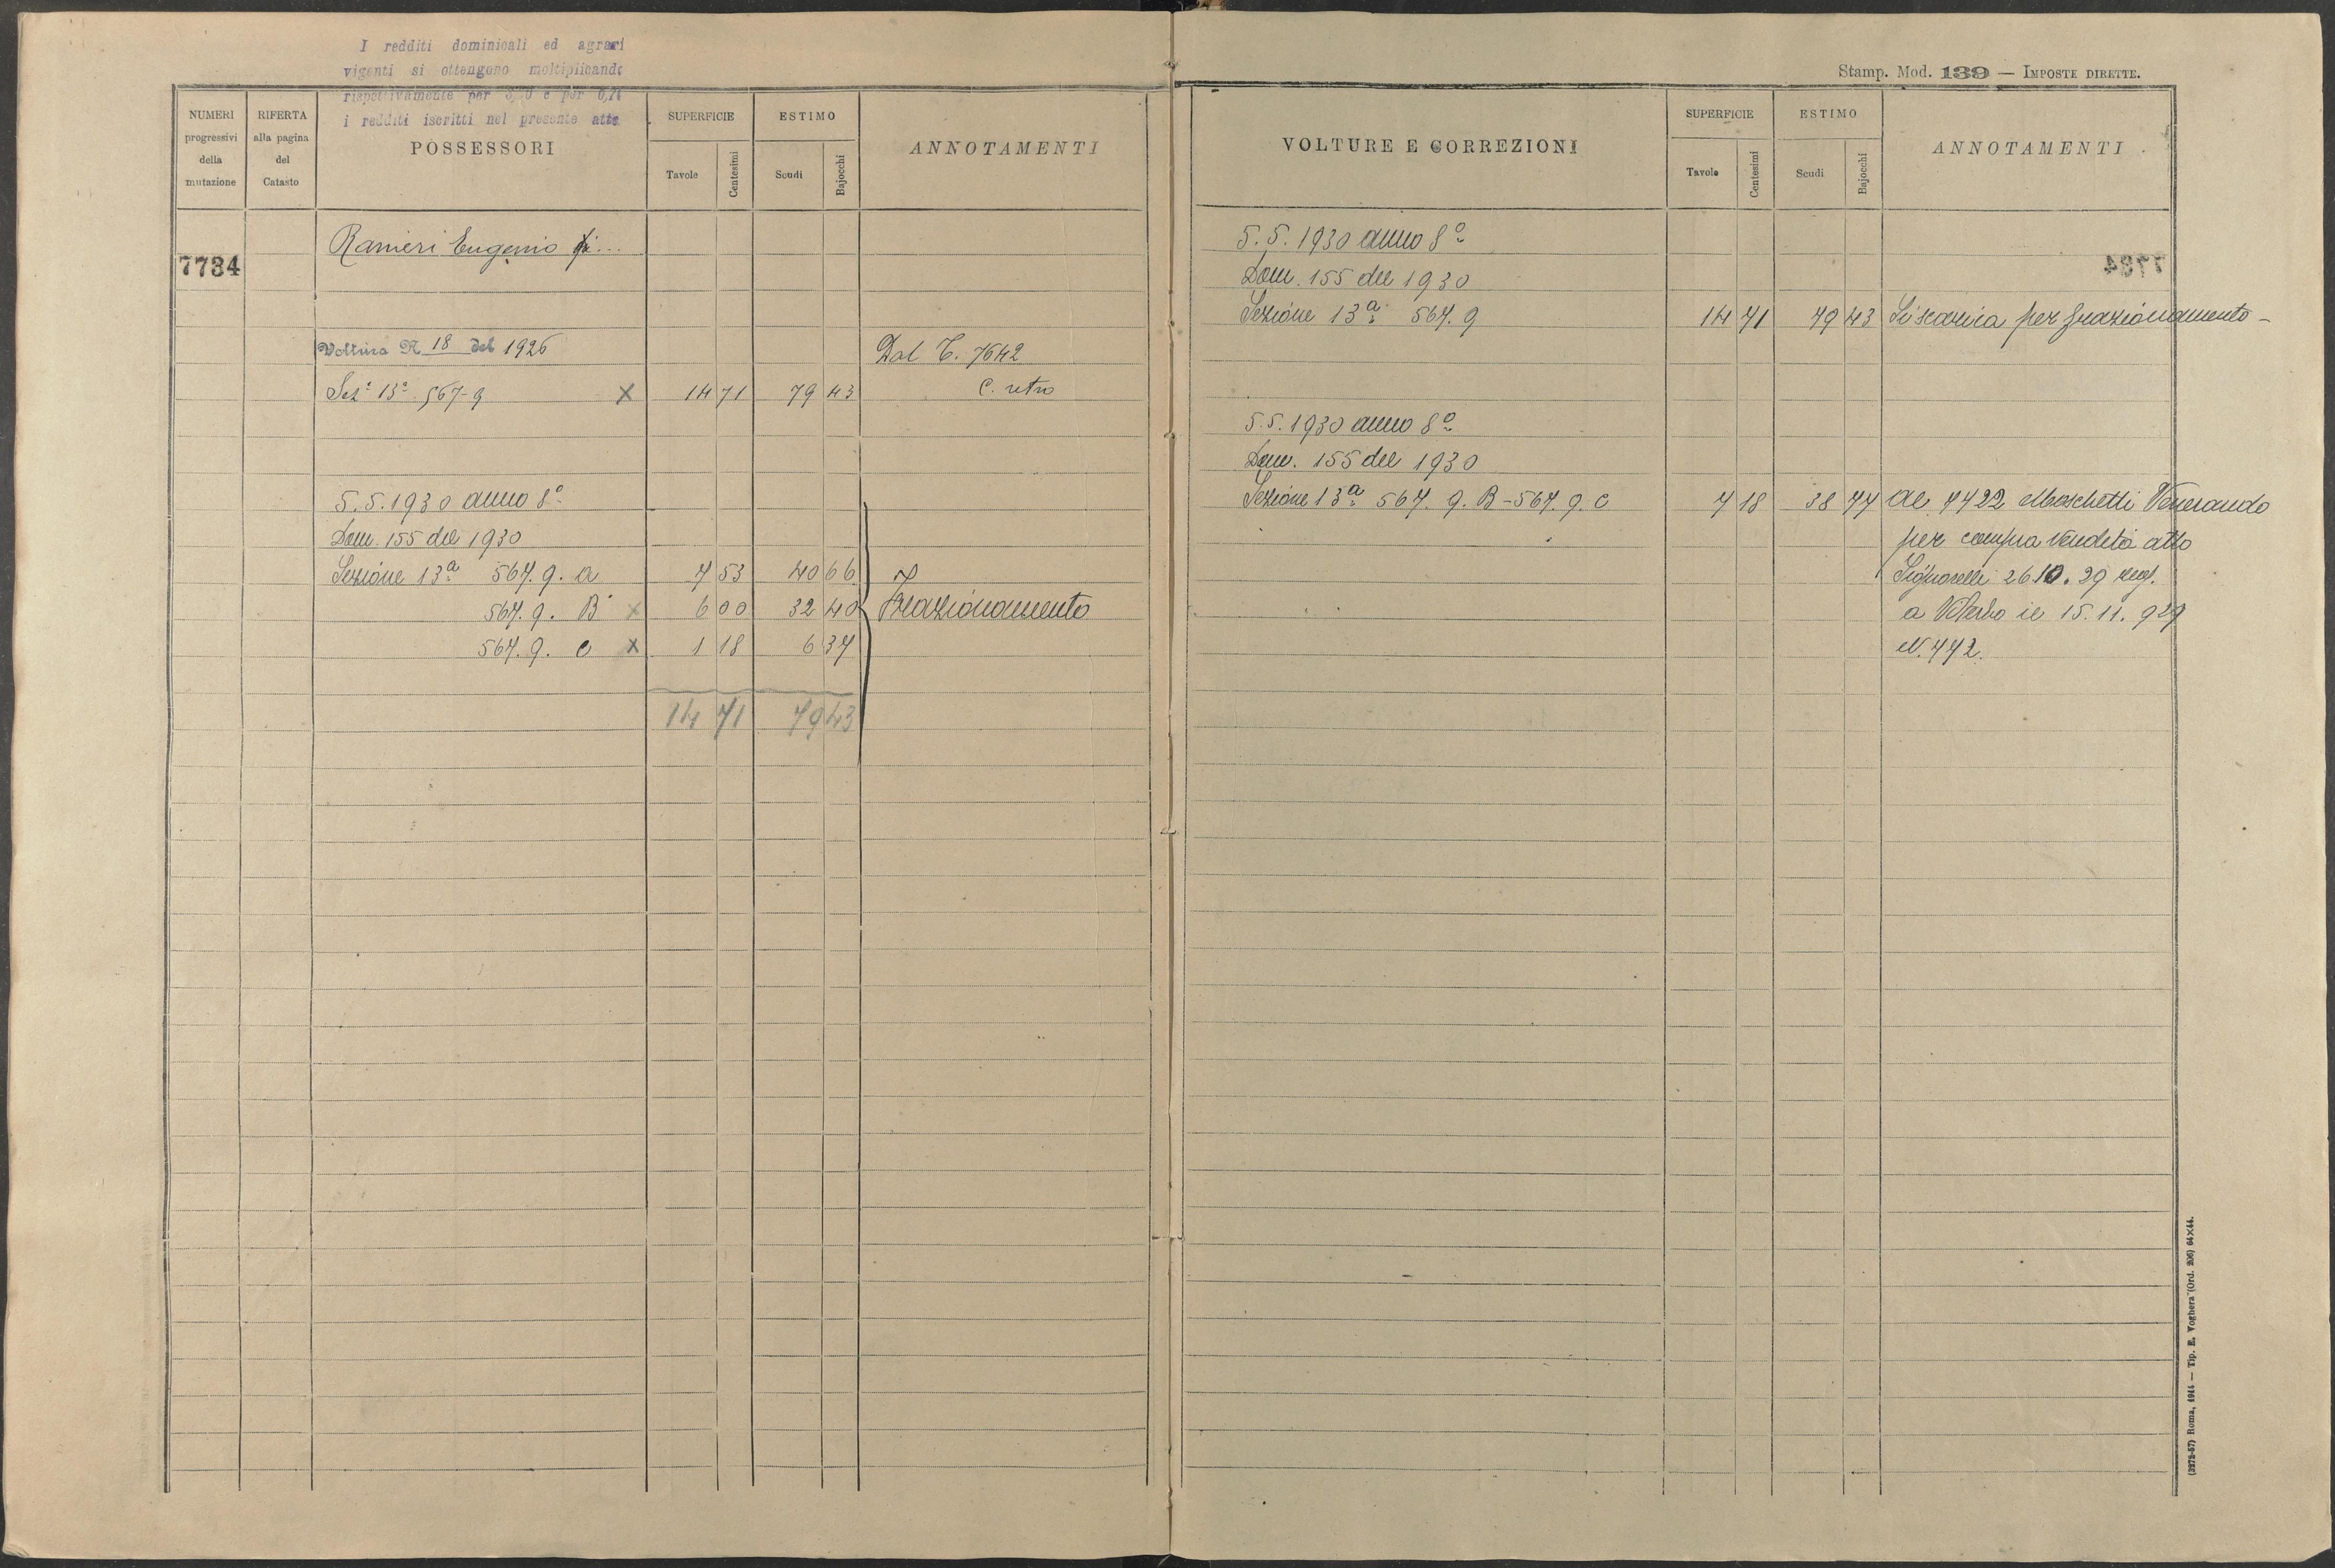 I redditi dominicali ed agrari
vigenti si ottengono moltiplicando
rispettivamente per e per
i redditi iscritti nel presente atto
NUMERI
progressivi
della
mutazione
RIFERTA
alla pagina
del
Catasto
POSSESSORI
SUPERFICIE
Tavole
Centesimi
ESTIMO
Scudi
Bajocchi
ANNOTAMENTI
7734
Ranieri Eugenio
Voltura N 18 del 1926
Dal T. 7642
Sez.e 13a 567-9 X 14 71 79 43 C. retro
5.5.1930 anno 8°
Dom. 155 del 1930
Sezione 13a 567.9. a 7 53 40 66
567.9. B X 6 00 32 40 Frazionamento
567.9. c X 1 18 6 37
14 71 79 43
Stamp. Mod. 139 — IMPOSTE DIRETTE.
VOLTURE E CORREZIONI
SUPERFICIE
Tavole
Centesimi
ESTIMO
Scudi
Bajocchi
ANNOTAMENTI
5.5.1930 anno 8°
7734
Dom. 155 del 1930
Sezione 13a 567.9 14 71 79 43 Si scarica per frazionamento -
5.5.1930 anno 8°
Dom. 155 del 1930
Sezione 13a 567.9.B-567.9.c 7 18 38 77 Al 7422 Moschetti Venerando
per compra vendita atto
Signorelli 26.10.29 reg.
a Viterbo il 15.11.929
N. 772.
(3275-57) Roma, 1914 — Tip. E. Voghera (Ord. 206) 64×44.